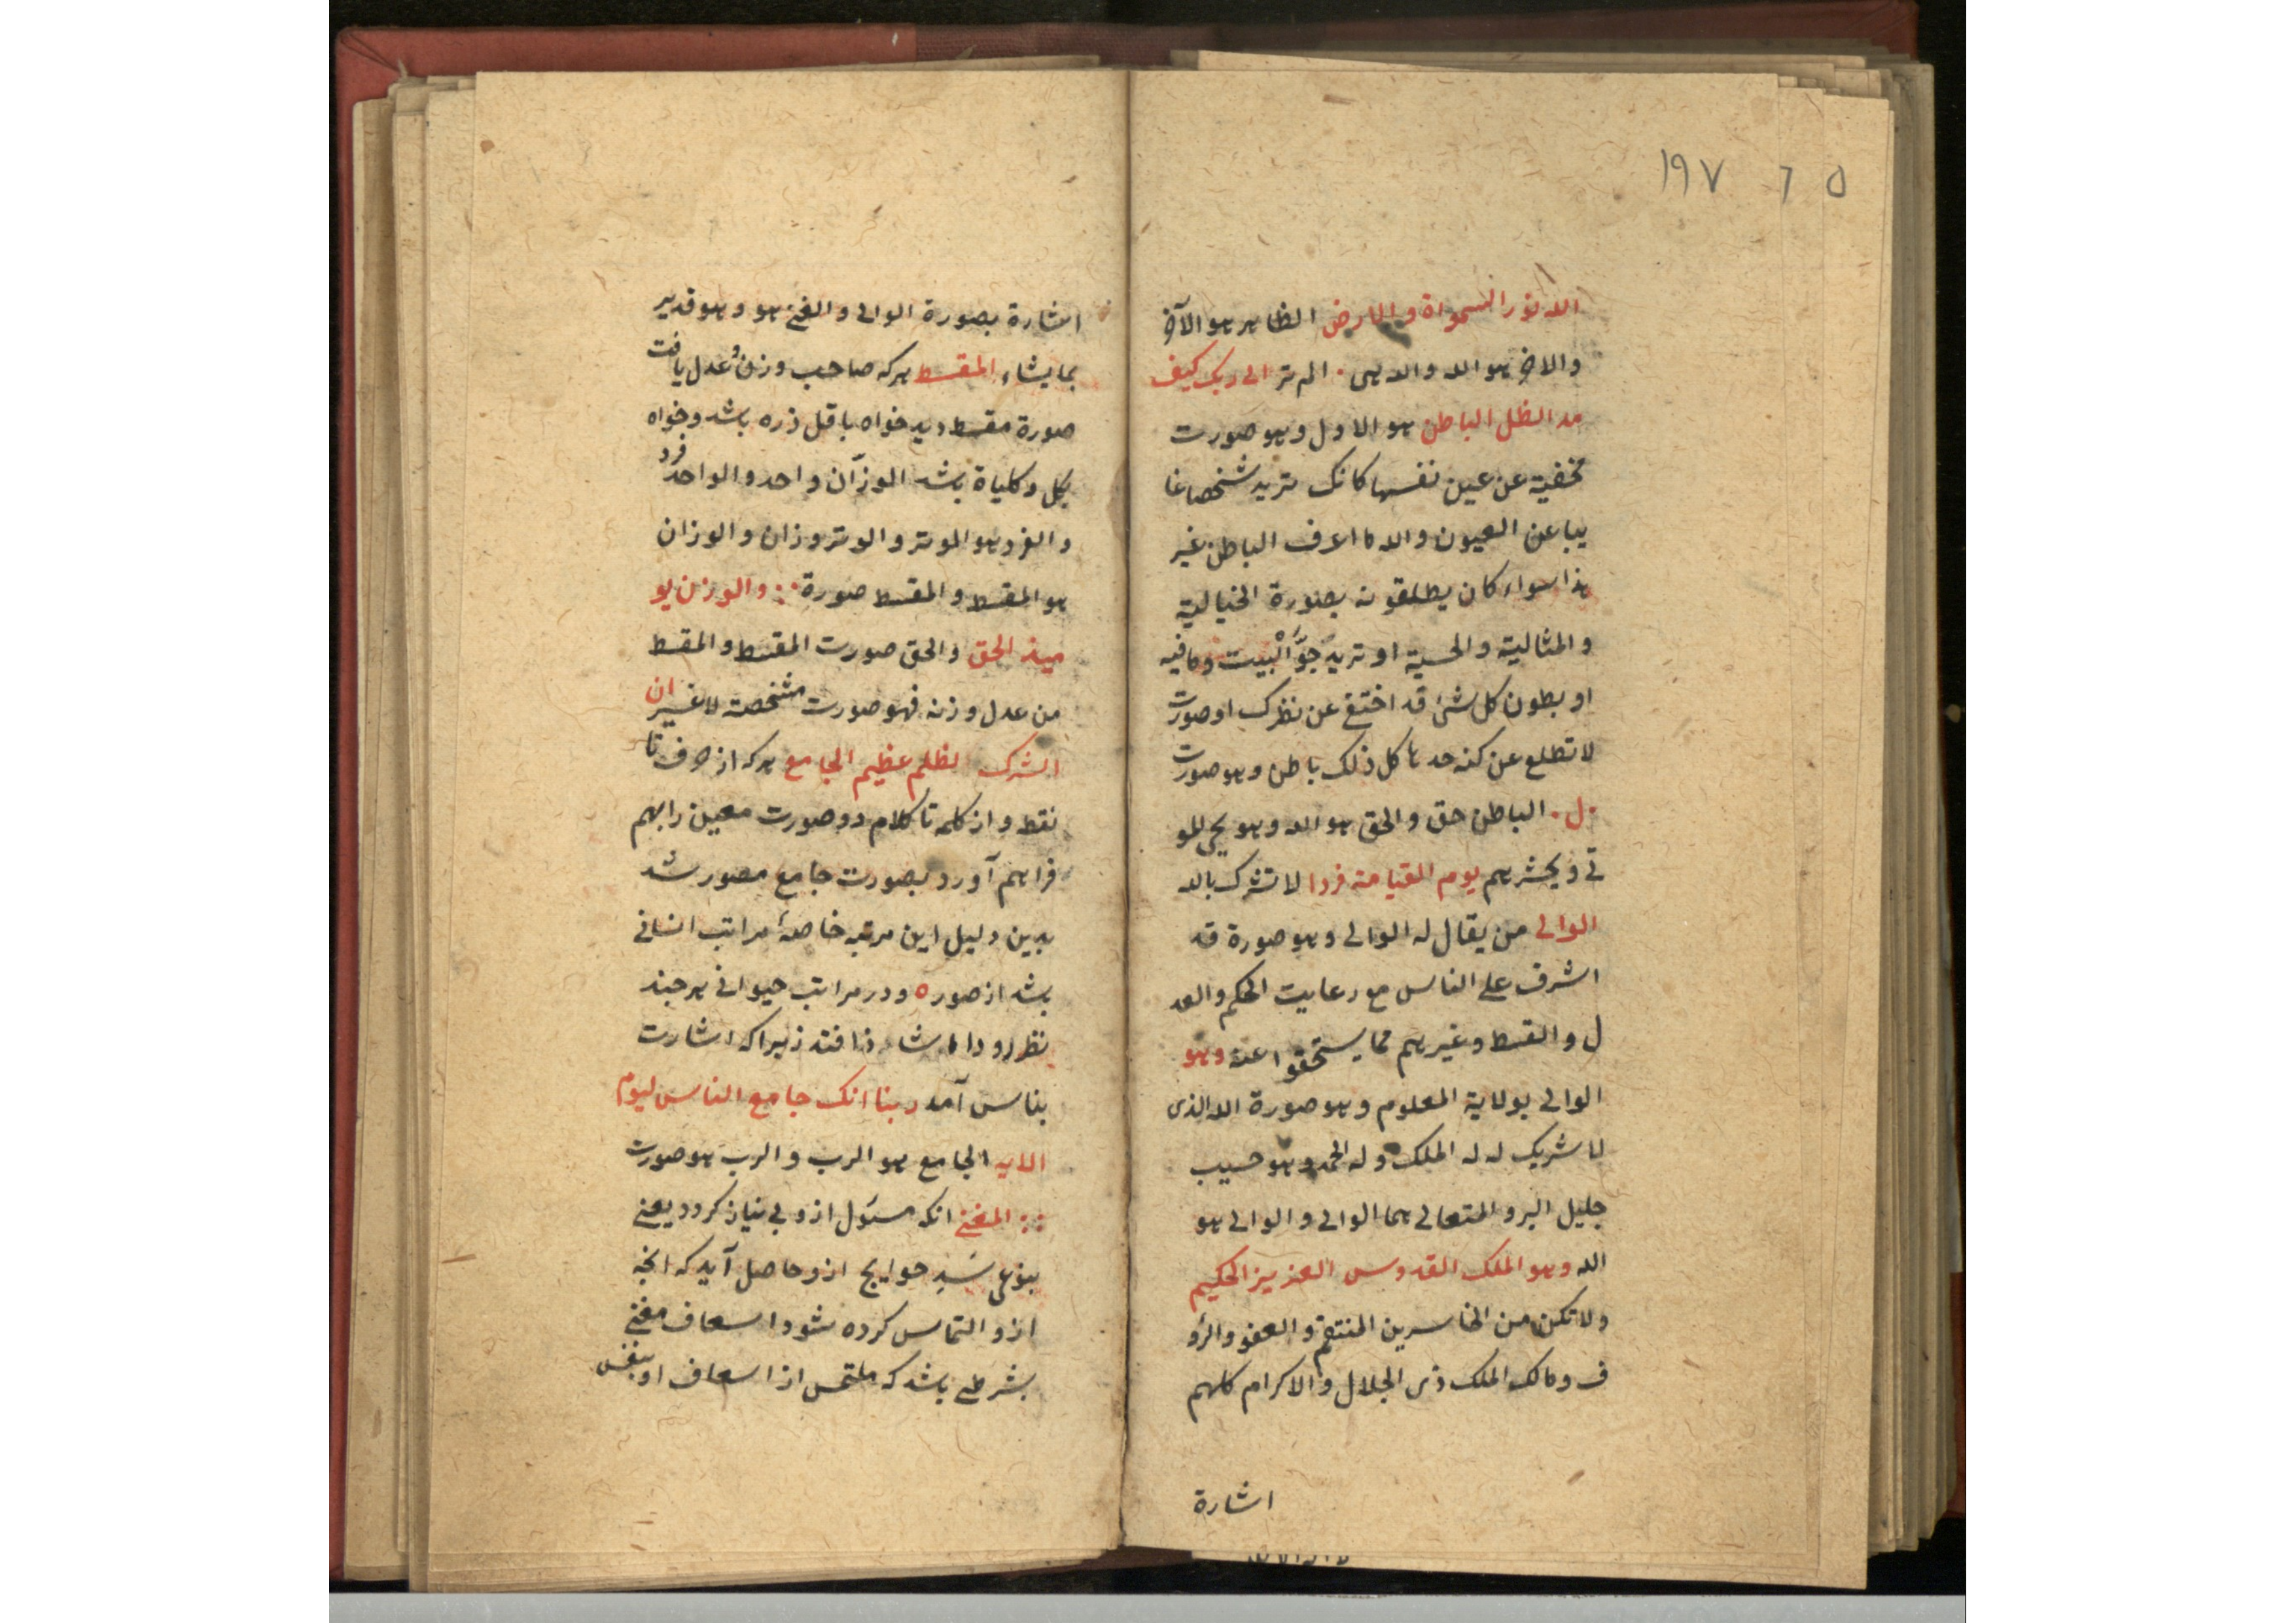 ١٩٧ ٦ ٥
الله نور السمواة والارض الظاهر هو الآخر
والاخر هو الله والله هى ۰ الم تر الى ربك كيف
مد الظل الباطن هو الاول وهو صورت
مخفية عن عين نفسها كانك تريد شخصا غا
يبا عن العيون والله ما اعرف الباطن غير
هذا سواء كان يطلقونه بصورة الخيالية
و المثالية والحسية او تريد جوّ البيت وما فيه
او بطون كل شئ قد اختفى عن نظرك او صورت
لا تطلع عن كنه حدها كل ذلك باطن وهو صورت
۰ل۰ الباطن حق والحق هو الله وهو يحي المو
تى ويحشرهم يوم القيامة فردا لا تشرك بالله
الوالى من يقال له الوالى وهو صورة قد
اشرف على الناس مع رعايت الحكم والعد
ل والقسط وغيرهم مما يستحقوا عنه وهو
الوالى بولاية المعلوم وهو صورة الله الذى
لا شريك له له الملك وله الحمد وهو حسيب
جليل البر و المتعالى هما الوالى و الوالى هو
الله وهو الملك القدوس العزيز الحكيم
ولا تكن من الخاسرين المنتقم و العفو والرؤ
ف ومالك الملك ذى الجلال والاكرام كلهم
اشارة
اشارة بصورة الوالى و الغنى هو وهو قدير
بما يشاء المقسط هركه صاحب وزن و عدل يافت
صورة مقسط ديد خواه باقل ذره باشد وخواه
بكل و كلياة باشد الوزّان واحد والواحد فرد
و الفرد هو الموتر و الوتر وزان و الوزان
هو المقسط و المقسط صورة والوزن يو
ميذ الحق والحق صورت المقسط و المقسط
من عدل وزنه فهو صورت مشخصة لا غير ان
الشرك لظلم عظيم الجامع هركه از حرف تا
نقط و از كلمه تا كلام دو صورت معين را بهم
فراهم آورد بصورت جامع مصور شد
بدين دليل اين مرتبه خاصهٔ مراتب انسانى
باشد از صوره و در مراتب حيوانى هر چند
نظر رود اما شاذ افتد زيراكه اشارت
بناس آمد ربنا انك جامع الناس ليوم
الايه الجامع هو الرب و الرب هو صورت
المغنى انكه مسئول ازو بى نياز گردد يعنى
بنوعى سَدِ حوايج ازو حاصل آيد كه انچه
ازو التماس كرده شود اسعاف مغنى
بشرطى باشد كه ملتمس از اسعاف او بنفس